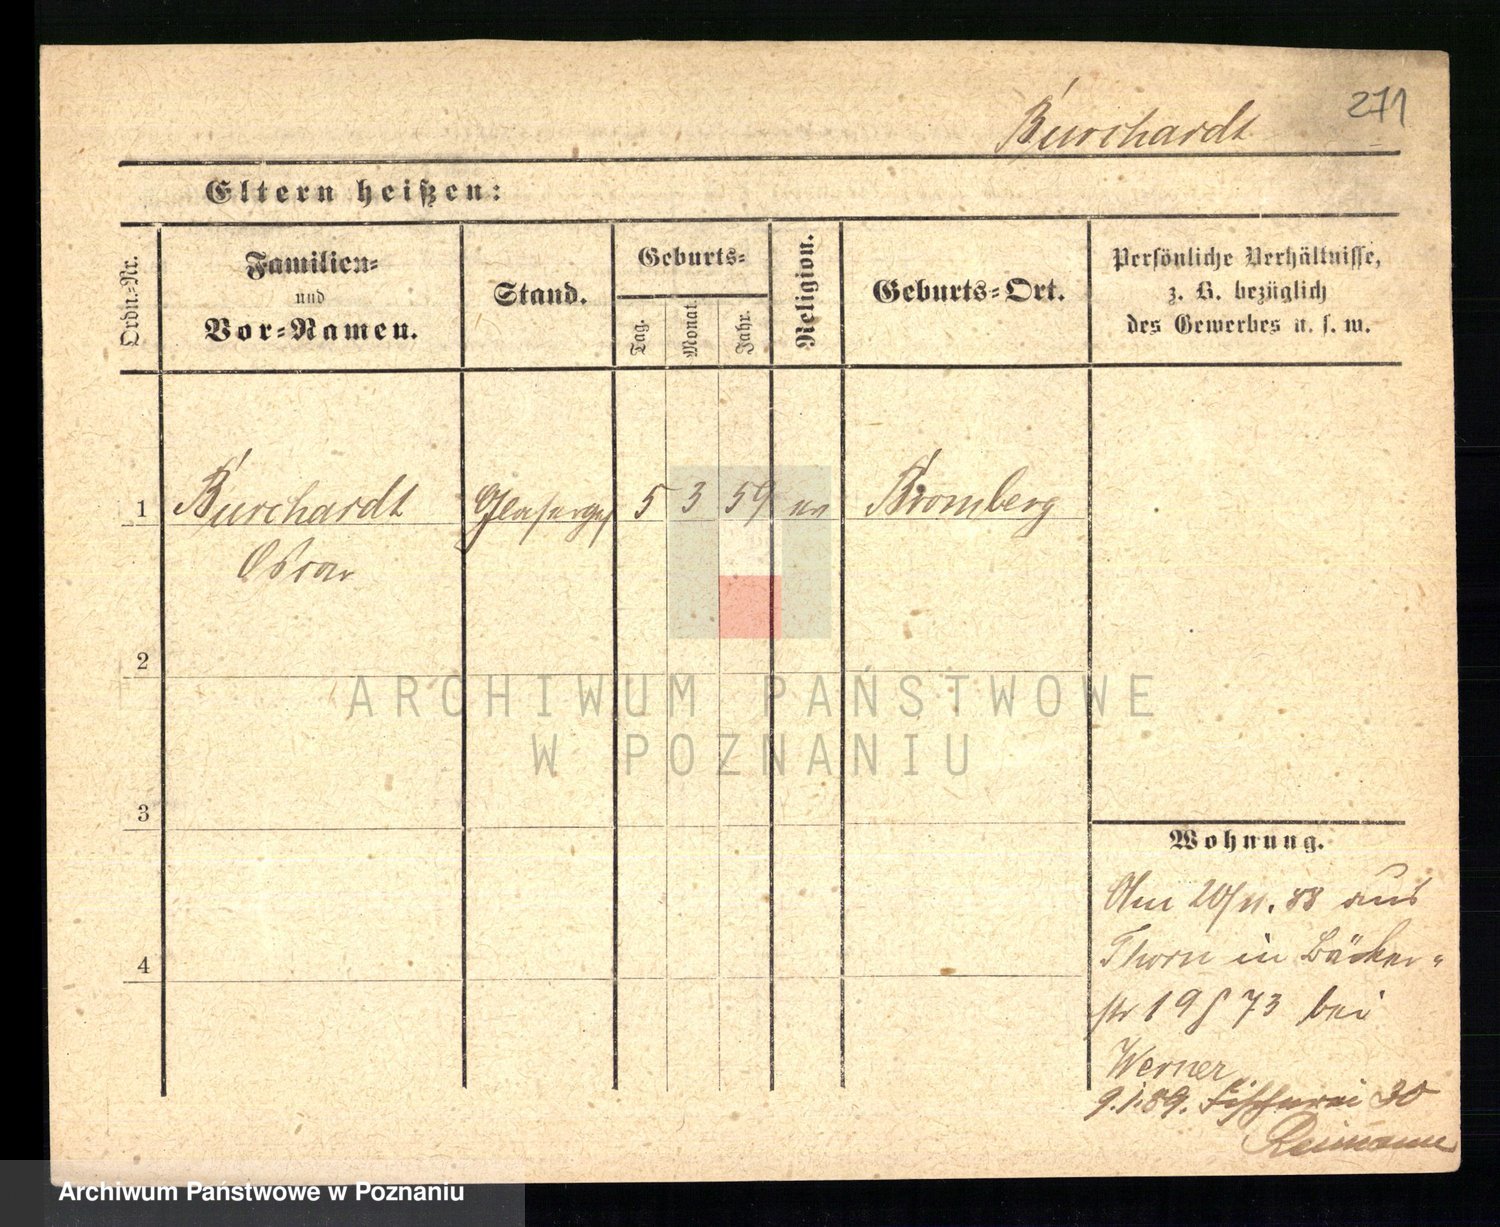 271
Burchardt
Eltern heißen:
Ordn.-Nr.
Familien-
und
Vor-Namen.
Stand.
Geburts-
Tag.
Monat.
Jahr.
Religion.
Geburts-Ort.
Persönliche Verhältnisse,
z. B. bezüglich
des Gewerbes u. s. w.
1 Burchardt Glaserges 5 3 59 ev Bromberg
Oscar
2
3
4
ARCHIWUM PAŃSTWOWE
W POZNANIU
Wohnung.
Am 20/11. 88 aus
Thorn in Bäcker-
str 19 73 bei
Werner
9.1.89. Fischerei 30
Reimann
Archiwum Państwowe w Poznaniu